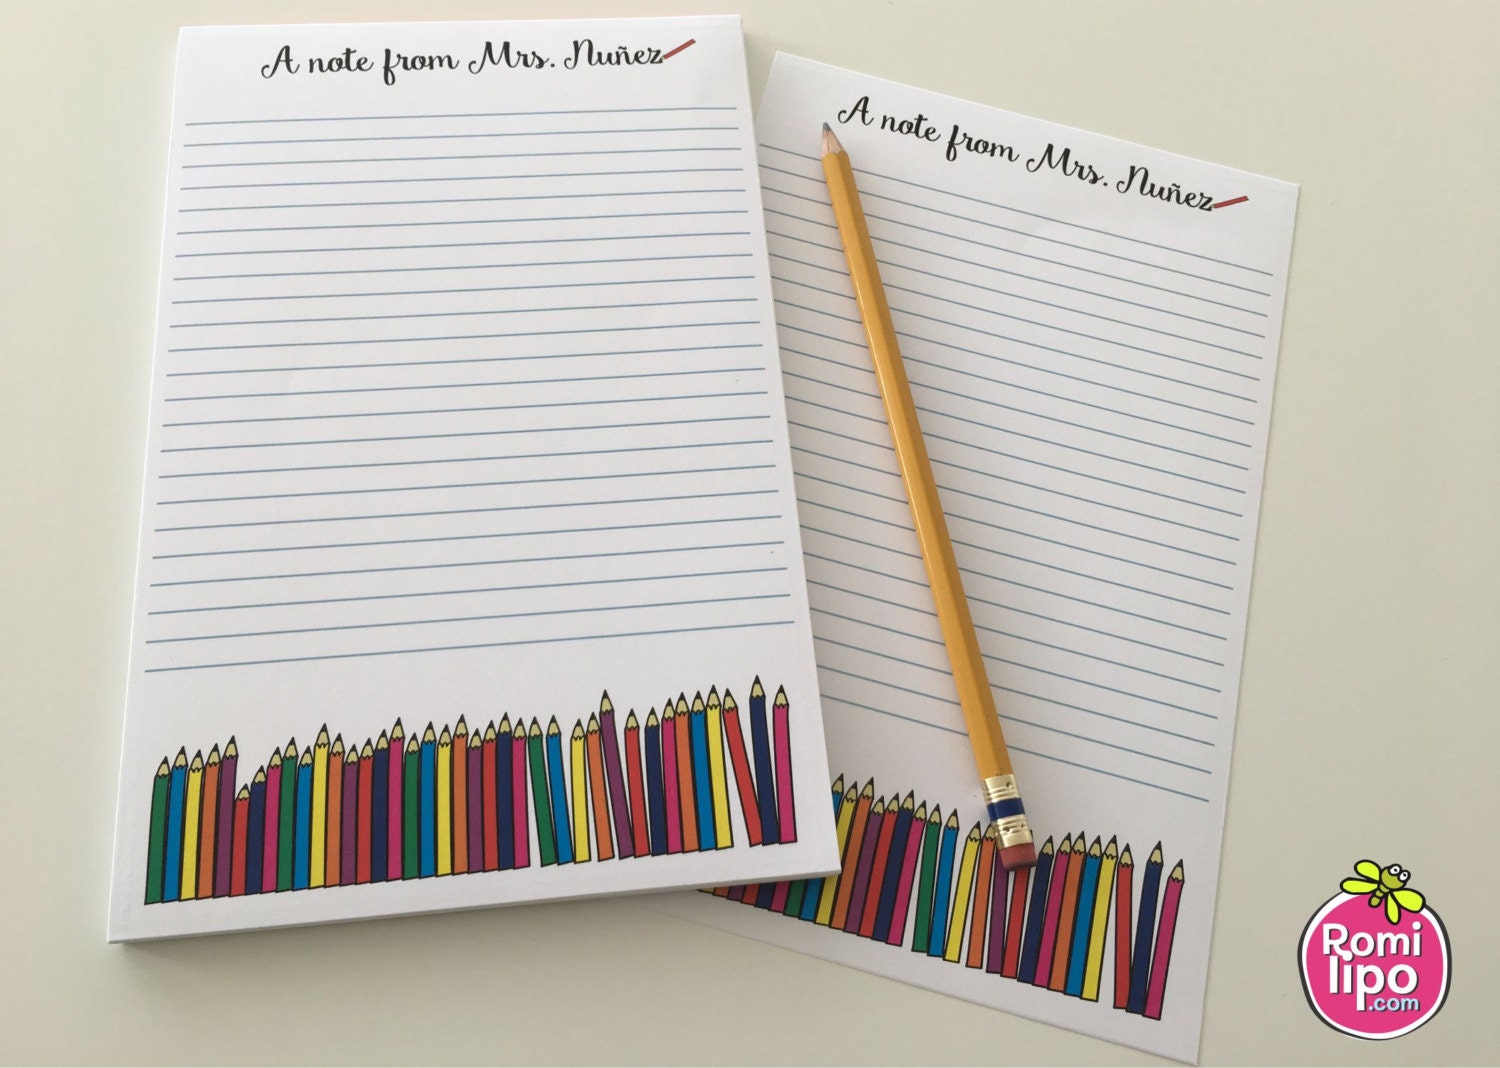 A note from Mrs. Nuñez
A note from Mrs. Nuñez
Romi
lipo
.com